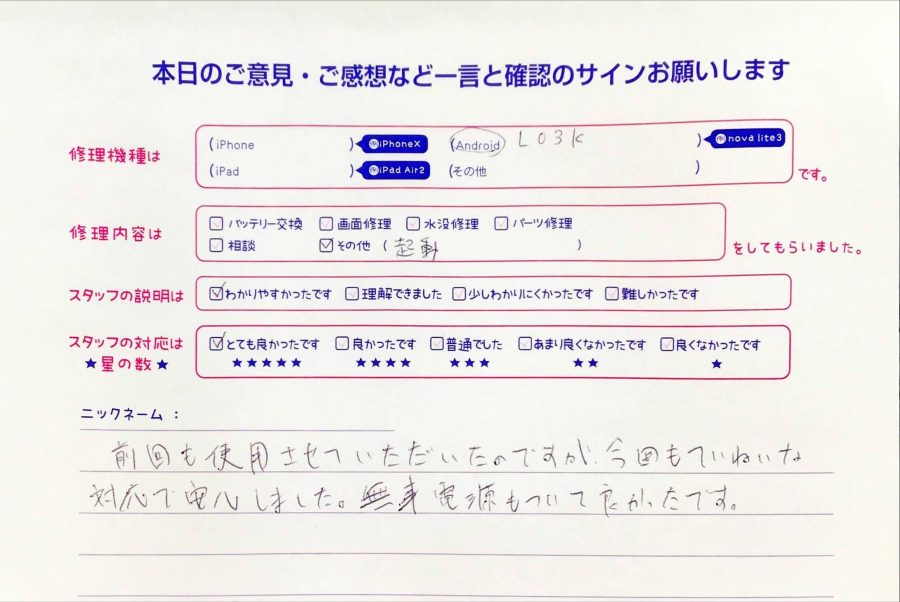 本日のご意見・ご感想など一言と確認のサインお願いします
修理機種は
(iPhone )iPhoneX (Android L03K )nova lite3
(iPad )iPad Air2 (その他 )
です。
修理内容は
バッテリー交換 画面修理 水没修理 パーツ修理
相談 その他 ( 起動 )
をしてもらいました。
スタッフの説明は
わかりやすかったです 理解できました 少しわかりにくかったです 難しかったです
スタッフの対応は
★星の数★
とても良かったです 良かったです 普通でした あまり良くなかったです 良くなかったです
★★★★★ ★★★★ ★★★ ★★ ★
ニックネーム：
前回も使用させていただいたのですが、今回もていねいな
対応で安心しました。無事電源もついて良かったです。